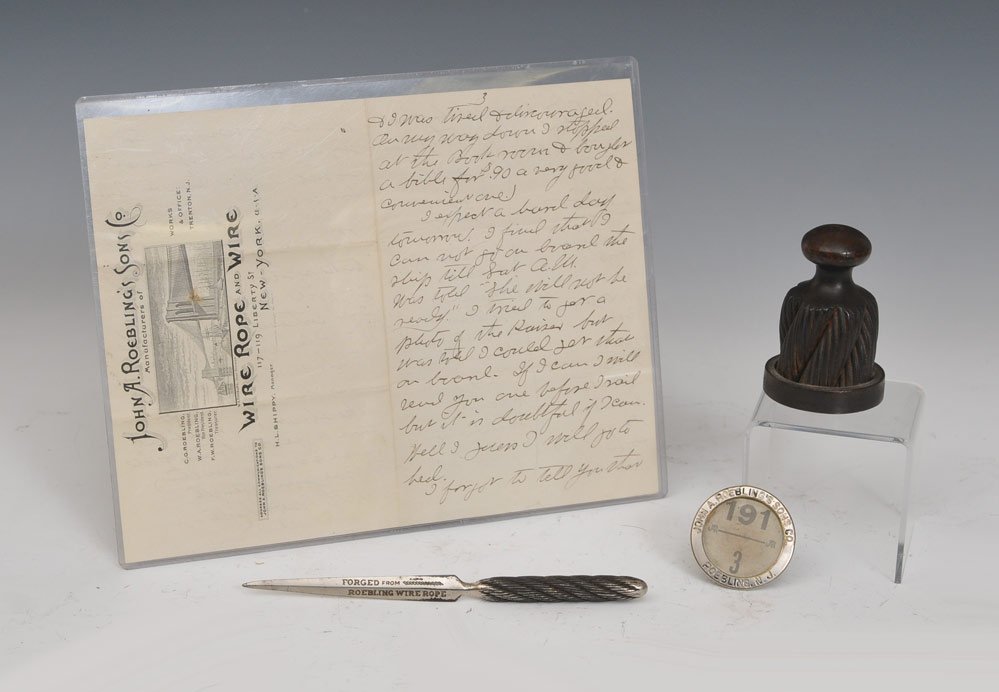 JOHN A. ROEBLING'S SONS CO.
Manufacturers of
WORKS
& OFFICE
TRENTON, N.J.
WIRE ROPE AND WIRE
117-119 LIBERTY ST
NEW-YORK, U-S-A
H.L. SHIPPY, Manager
C.G. ROEBLING,
President
W.A. ROEBLING,
Vice President
F.W. ROEBLING,
Treasurer
3
& I was tired & discouraged.
On my way down I stopped
at the Book room & bought
a bible for $.90 a very good &
convenient one.)
I expect a hard day
tomorrow. I find that I
can not go on board the
ship till Sat A.M.
was told "she will not be
ready" I tried to get a
photo of the Kaiser but
was told I could get that
on board. If I can I will
send you one before I sail
but it is doubtful if I can.
Well I guess I will go to
bed.
I forgot to tell you that
FORGED FROM
ROEBLING WIRE ROPE
JOHN A. ROEBLING'S SONS CO.
191
3
ROEBLING, N. J.